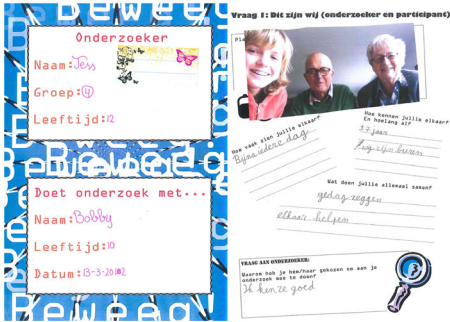 Beweeg!
Onderzoeker
Naam: Jess
Groep: 4
Leeftijd: 12
Beweeg!
Doet onderzoek met...
Naam: Bobby
Leeftijd: 10
Datum: 13-3-2012
Beweeg!
Vraag 1: Dit zijn wij (onderzoeker en participant)
Hoe kennen jullie elkaar?
En hoelang al?
37 jaar
zijn buren
Hoe vaak zien jullie elkaar?
Bijna iedere dag
Wat doen jullie allemaal samen?
gedag zeggen
elkaar helpen
VRAAG AAN ONDERZOEKER:
Waarom heb je hem/haar gekozen om aan je
onderzoek mee te doen?
Ik ken ze goed